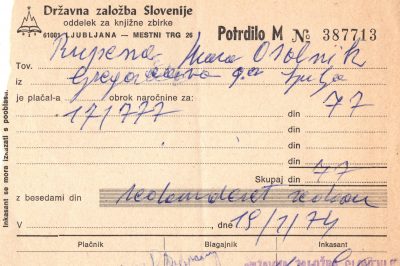 Državna založba Slovenije
oddelek za knjižne zbirke
61001 LJUBLJANA — MESTNI TRG 26
Potrdilo M № 387713
Rupena Mara Osolnik
Tov.
je plačal-a obrok naročnine za: 77
171777 din
din
din
din
Skupaj din 77
z besedami din
V , dne 19/1/74
Plačnik Blagajnik Inkasant
Inkasant se mora izkazati s pooblas